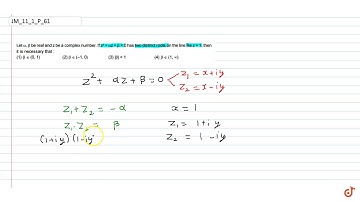 JM_11_1_P_61
Let α, β be real and z be a complex number. If z² + αz + β = 0 has two distinct roots on the line Re z = 1, then
it is necessary that :
(1) β ∈ (0, 1) (2) β ∈ (-1, 0) (3) |β| = 1 (4) β ∈ (1, ∞)
z² + αz + β = 0
z₁ = x + iy
z₂ = x - iy
z₁ + z₂ = -α x = 1
z₁ . z₂ = β z₁ = 1 + i y
(1+iy) (1-iy z₂ = 1 - iy